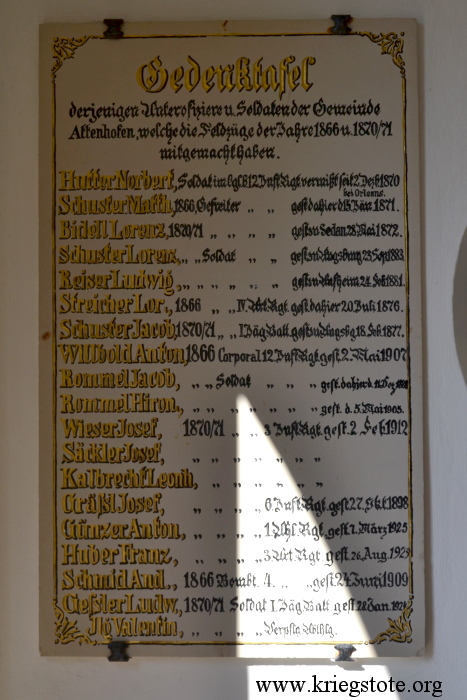 Gedenktafel
derjenigen Unteroffiziere u. Soldaten der Gemeinde
Attenhofen, welche die Feldzüge der Jahre 1866 u. 1870/71
mitgemacht haben.
Hutter Norbert, Soldat im kgl. b. 12. Inft. Rgt. vermißt seit 2. Dezb. 1870
bei Orleans.
Schuster Math. 1866, Gefreiter „ „ gest. dahier d. 15. Jan. 1871.
Bidell Lorenz, 1870/71 „ „ „ „ gest. zu Sedan 28. Mai 1872.
Schuster Lorenz, „ „ Soldat „ „ gest. zu Augsburg 23. Sept. 1883.
Keiser Ludwig, „ „ „ „ „ gest. in 24. Feb. 1881.
Streicher Lor., 1866 „ „ IV. Art. Rgt. gest. dahier 20. Juli 1876.
Schuster Jacob, 1870/71 „ „ I. Jäg. Batt. gest. zu Augsbg. 18. Feb. 1877.
Willbold Anton, 1866 Corporal 12. Inft. Rgt. gest. 2. Mai 1907
Rommel Jacob, „ „ Soldat „ „ „ gest. dahier d.
Rommel Hiron., „ „ „ „ „ „ gest. d. 5. Mai 1905.
Wieser Josef, 1870/71 „ „ 3 Inft. Rgt. gest. 2. Feb. 1912
Säckler Josef, „ „ „ „ „ „
Kalbrecht Leonh., „ „ „ „ „ „
Gräßl Josef, „ „ „ 6 Inft. Rgt. gest. 27. Okt. 1898
Günzer Anton, „ „ „ 1 Rgt. gest. 7. März 1925
Huber Franz, „ „ „ 3 Art. Rgt. gest. 26. Aug. 1925
Schmid And., 1866 Bombr. 4. „ „ gest. 24. Juni 1909
Geßler Ludw., 1870/71 Soldat I. Jäg. Batt. gest. 28. Jan.
Ilg Valentin, „ „ „ Verpflg. Abthlg.
www.kriegstote.org